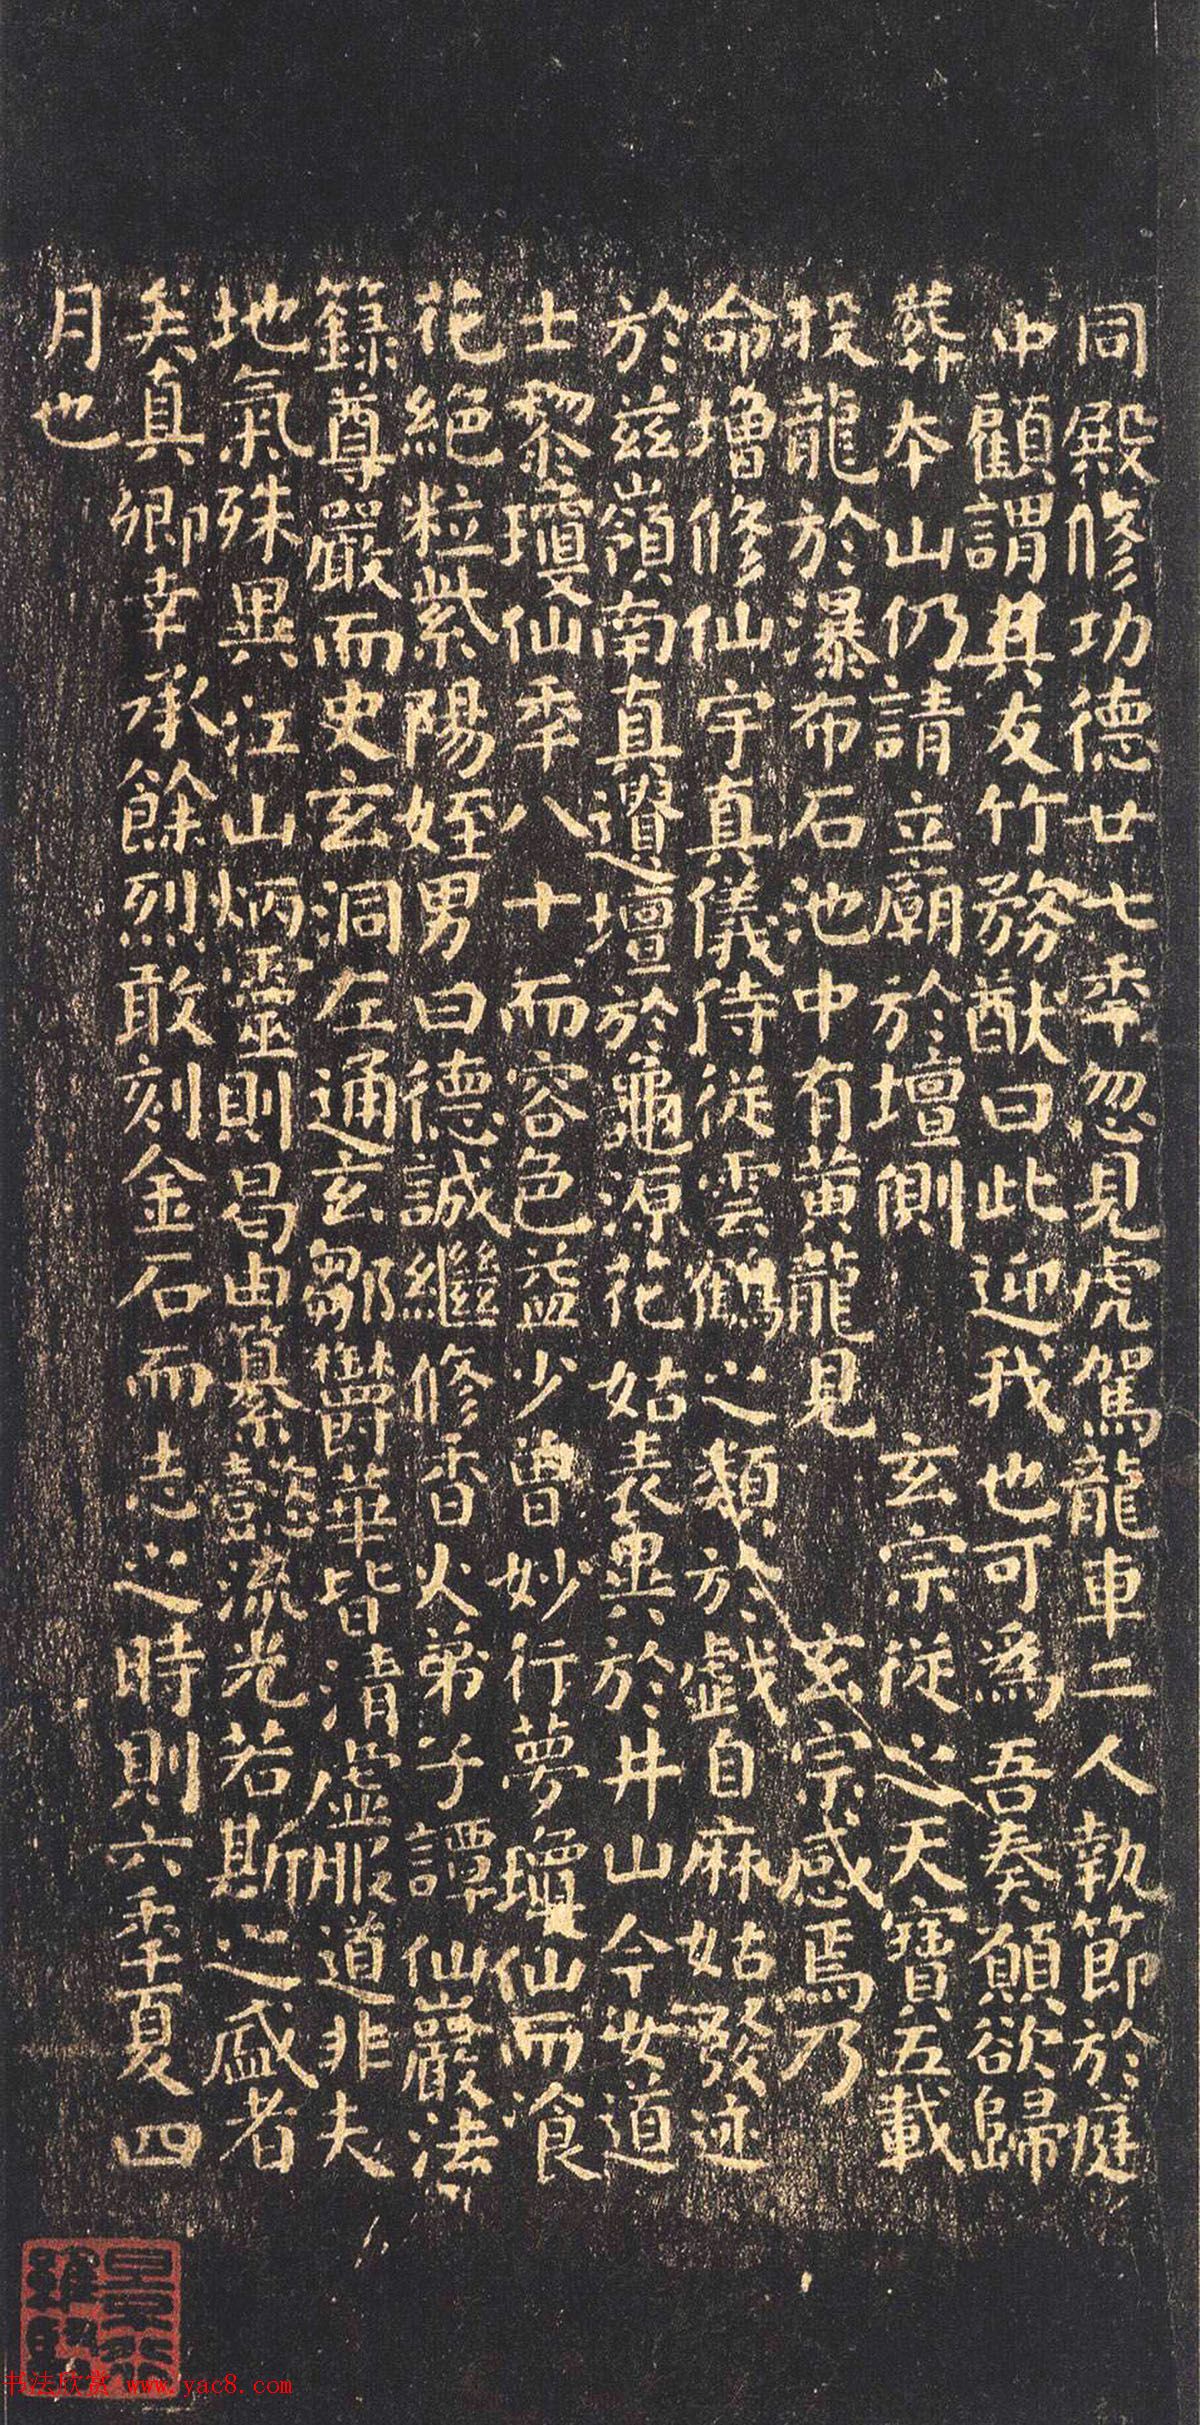 同殿修功德廿七季忽見虎駕龍車二人執節於庭
中顧謂其友竹務猷曰此迎我也可為吾奏願欲歸
葬本山仍請立廟於壇側玄宗從之天寶五載
投龍於瀑布石池中有黄龍見玄宗感焉乃
命增修仙宇真儀侍從雲鶴之類於戲自麻姑發迹
於兹嶺南真遺壇於龜源花姑表異於井山今女道
士黎瓊仙季八十而容色益少曾妙行夢瓊仙而飡
花絶粒紫陽姪男曰德誠繼修香火弟子譚仙巖法
籙尊嚴而史玄洞左通玄鄒鬱華皆清虛服道非夫
地氣殊異江山炳靈則曷由纂懿流光若斯之盛者
矣真卿幸承餘烈敢刻金石而志之時則六季夏四
月也
书法欣赏 www.yac8.com